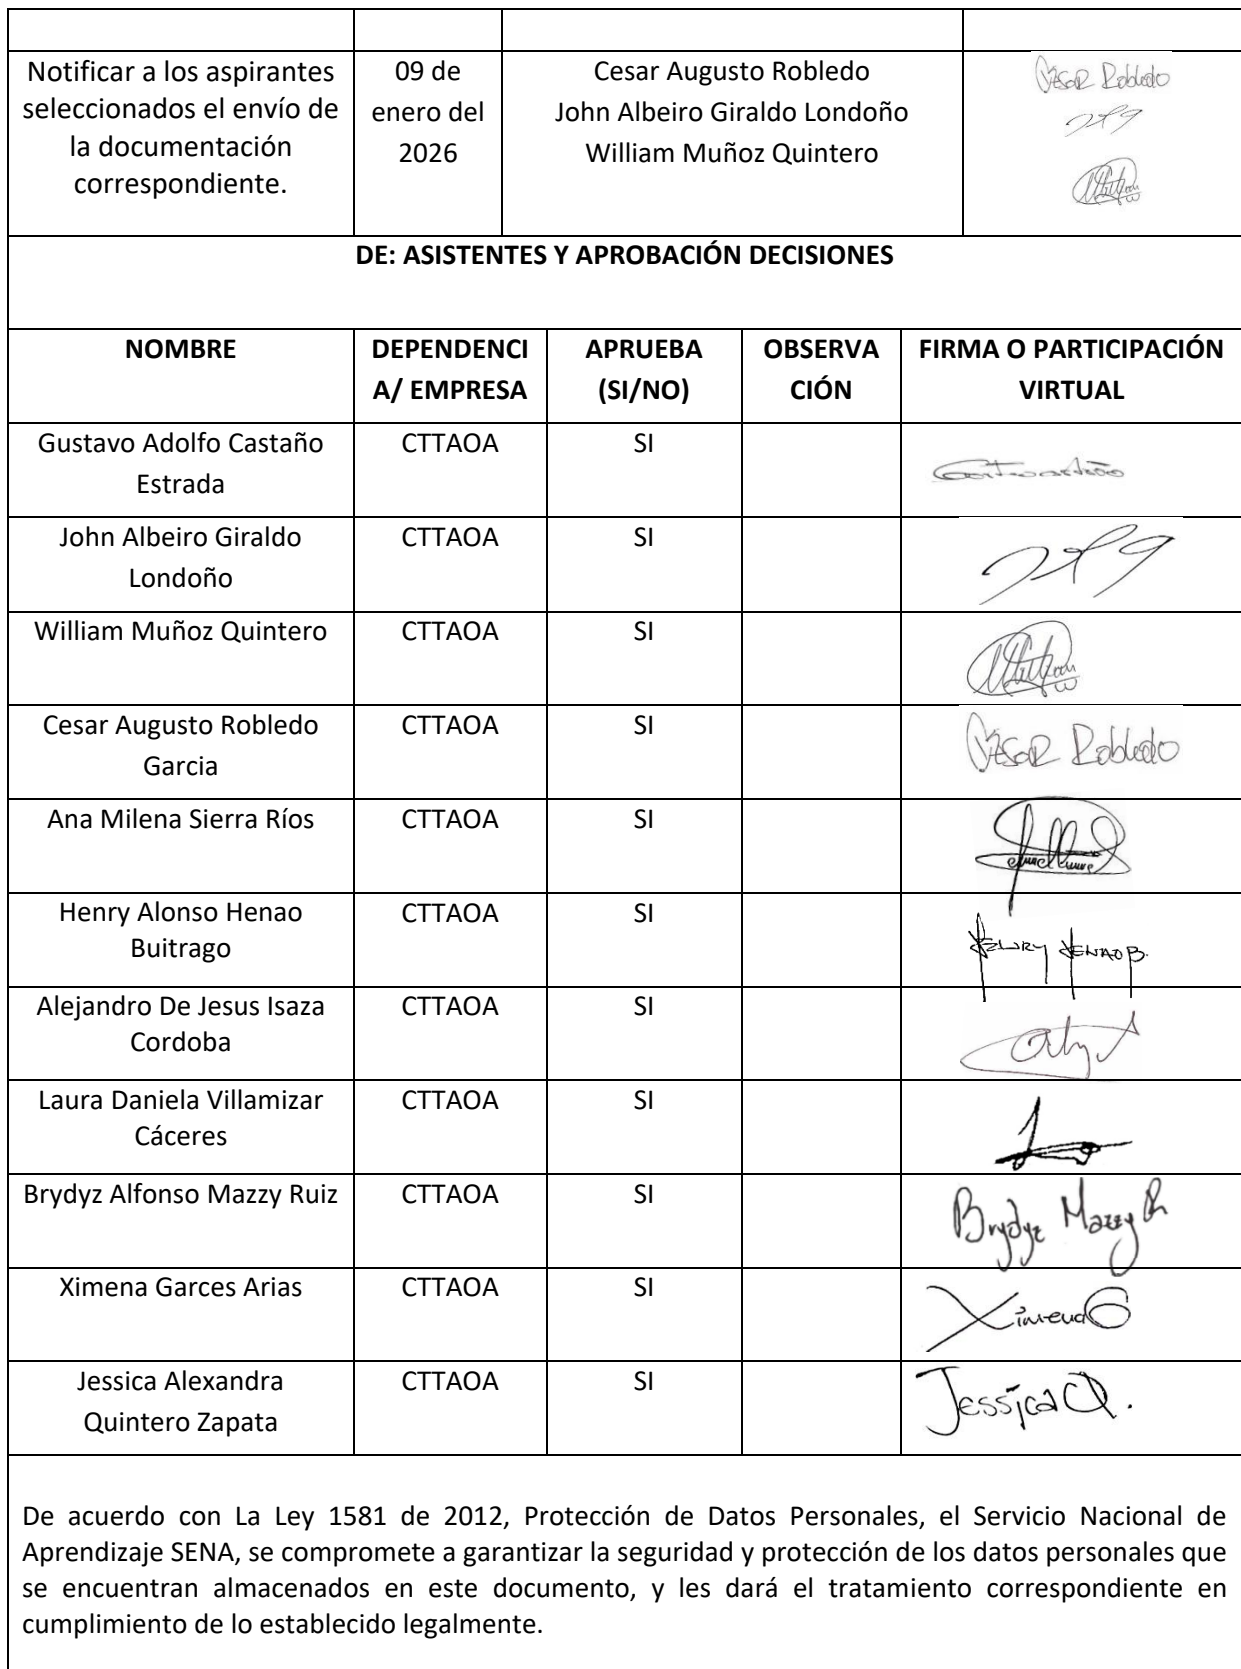 Notificar a los aspirantes
seleccionados el envío de
la documentación
correspondiente.
09 de
enero del
2026
Cesar Augusto Robledo
John Albeiro Giraldo Londoño
William Muñoz Quintero
Cesar Robledo
DE: ASISTENTES Y APROBACIÓN DECISIONES
NOMBRE
DEPENDENCI
A/ EMPRESA
APRUEBA
(SI/NO)
OBSERVA
CIÓN
FIRMA O PARTICIPACIÓN
VIRTUAL
Gustavo Adolfo Castaño
Estrada
CTTAOA
SI
John Albeiro Giraldo
Londoño
CTTAOA
SI
William Muñoz Quintero
CTTAOA
SI
Cesar Augusto Robledo
Garcia
CTTAOA
SI
Cesar Robledo
Ana Milena Sierra Ríos
CTTAOA
SI
Henry Alonso Henao
Buitrago
CTTAOA
SI
Henry Henao B.
Alejandro De Jesus Isaza
Cordoba
CTTAOA
SI
Laura Daniela Villamizar
Cáceres
CTTAOA
SI
Brydyz Alfonso Mazzy Ruiz
CTTAOA
SI
Brydyz Mazzy R
Ximena Garces Arias
CTTAOA
SI
Ximena G
Jessica Alexandra
Quintero Zapata
CTTAOA
SI
Jessica Q.
De acuerdo con La Ley 1581 de 2012, Protección de Datos Personales, el Servicio Nacional de
Aprendizaje SENA, se compromete a garantizar la seguridad y protección de los datos personales que
se encuentran almacenados en este documento, y les dará el tratamiento correspondiente en
cumplimiento de lo establecido legalmente.